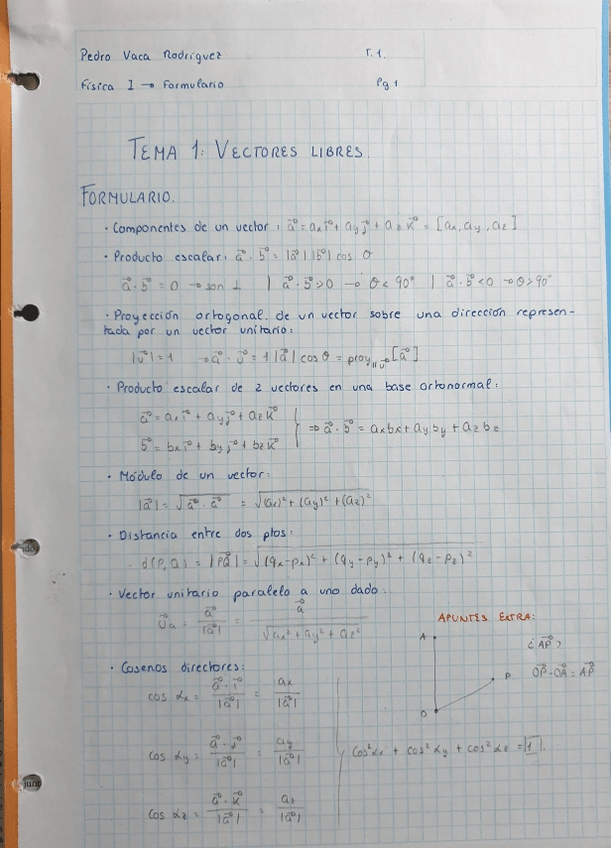 Pedro Vaca Rodríguez T.1.
Física I → Formulario Pg 1
TEMA 1: VECTORES LIBRES.
FORMULARIO.
· Componentes de un vector: a⃗ = axi⃗ + ayj⃗ + azk⃗ = [ax, ay, az]
· Producto escalar: a⃗ · b⃗ = |a⃗| |b⃗| cos θ
a⃗ · b⃗ = 0 → son ⊥ | a⃗ · b⃗ > 0 → θ < 90° | a⃗ · b⃗ < 0 → θ > 90°
· Proyección ortogonal de un vector sobre una dirección represen-
tada por un vector unitario:
|u⃗| = 1 → a⃗ · u⃗ = 1 |a⃗| cos θ = proy∥u⃗ [a⃗]
· Producto escalar de 2 vectores en una base ortonormal:
a⃗ = axi⃗ + ayj⃗ + azk⃗
b⃗ = bxi⃗ + byj⃗ + bzk⃗ ⇒ a⃗ · b⃗ = axbx + ayby + azbz
· Módulo de un vector:
|a⃗| = √(a⃗ · a⃗) = √((ax)² + (ay)² + (az)²)
· Distancia entre dos ptos:
d(P,Q) = |PQ⃗| = √((qx-px)² + (qy-py)² + (qz-pz)²)
· Vector unitario paralelo a uno dado:
u⃗a = a⃗/|a⃗| = a⃗/√(ax² + ay² + az²)
APUNTES EXTRA:
A
¿AP⃗?
P
OP⃗ - OA⃗ = AP⃗
O
· Cosenos directores:
cos αx = a⃗ · i⃗/|a⃗| = ax/|a⃗|
cos αy = a⃗ · j⃗/|a⃗| = ay/|a⃗| cos²αx + cos²αy + cos²αz = 1.
cos αz = a⃗ · k⃗/|a⃗| = az/|a⃗|